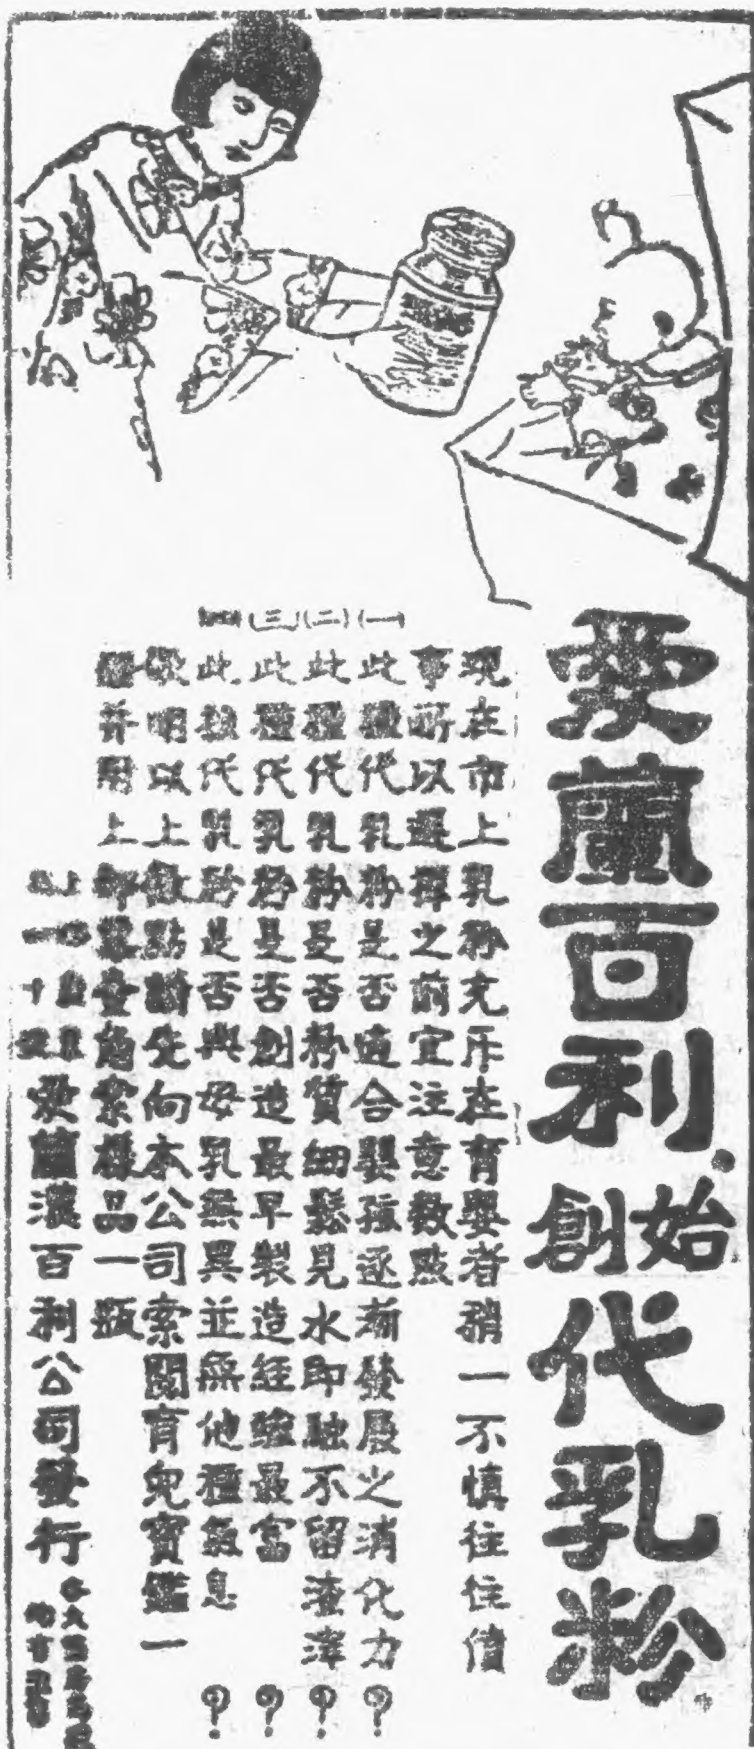 愛蘭百利
創始
代乳粉
現在市上乳粉充斥在育嬰者稍一不慎往往僨
事所以選擇之前宜注意數點
(一)此種代乳粉是否適合嬰孩逐漸發展之消化力?
(二)此種代乳粉是否粉質細鬆見水即融不留渣滓?
(三)此種代乳粉是否創造最早製造經驗最富?
(四)此種代乳粉是否與母乳無異並無他種氣息?
欲明以上數點請先向本公司索閱育兒寶鑑一
并附上郵票壹角索樣品一瓶
愛蘭漢百利公司發行